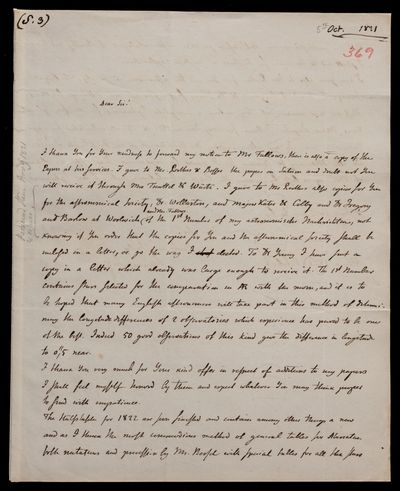 (S. 3)
5th Oct. 1821
369
Dear Sir!
I thank You for Your readiness to forward my notice to Mr Fallows, there is also a copy of the
Papers at his service. I gave to Mr the papers on Saturn and
will receive it through Mrs Treuttel & Würtz. I gave to Mr also copies for You
for the astronomical Society, Dr Wollaston, and Major Kater & Colby and Dr Gregory
and Mr Fallows,
and Barlow at Woolwich, of the 1st Number of my astronomische Nachrichten, not
knowing if You order that the copies for You and the astronomical Society shall be
inclosed in a letter, or go the way I elected. To Dr Young I have sent a
copy in a letter which already was large enough to receive it. The 1st Number
contains Stars selected for the comparation in AR with the moon, and it is to
be hoped that many English astronomers will take part in this method of determi-
ning the longitude differences of 2 observatories which experience has proved to be one
of the best. Indeed 50 good observations of this kind give the difference in longitude
to 0",5 near.
I thank You very much for Your kind offer in respect of additions to my papers
I shall feel myself honored by them and expect whatever You may think proper
to send with impatience.
The Hülfstafeln for 1822 are just finished and contain among other things a new
and as I think the most commodious method of general tables for Aberration
both nutations and precession by Mr. with special tables for all the stars